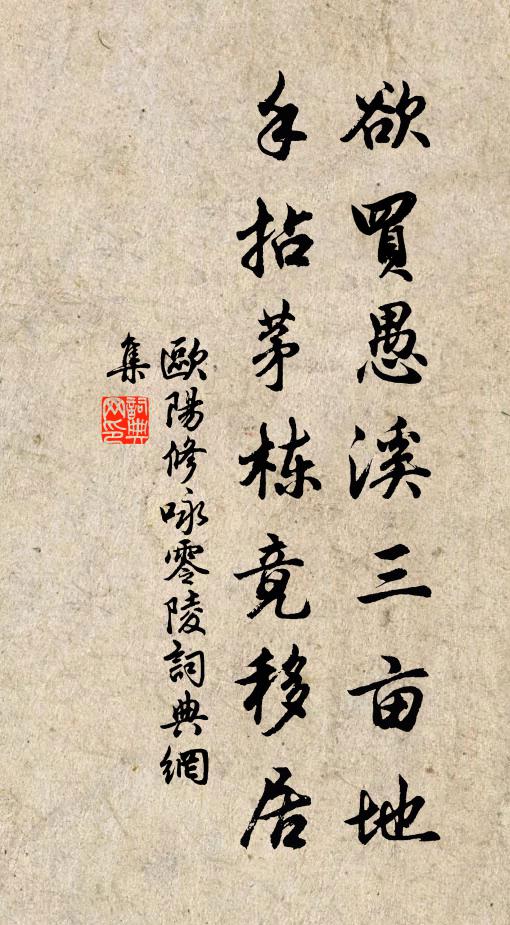 欲買愚溪三亩地
手拈茅栋竟移居
歐陽修咏零陵詞典網
集
詞典網印